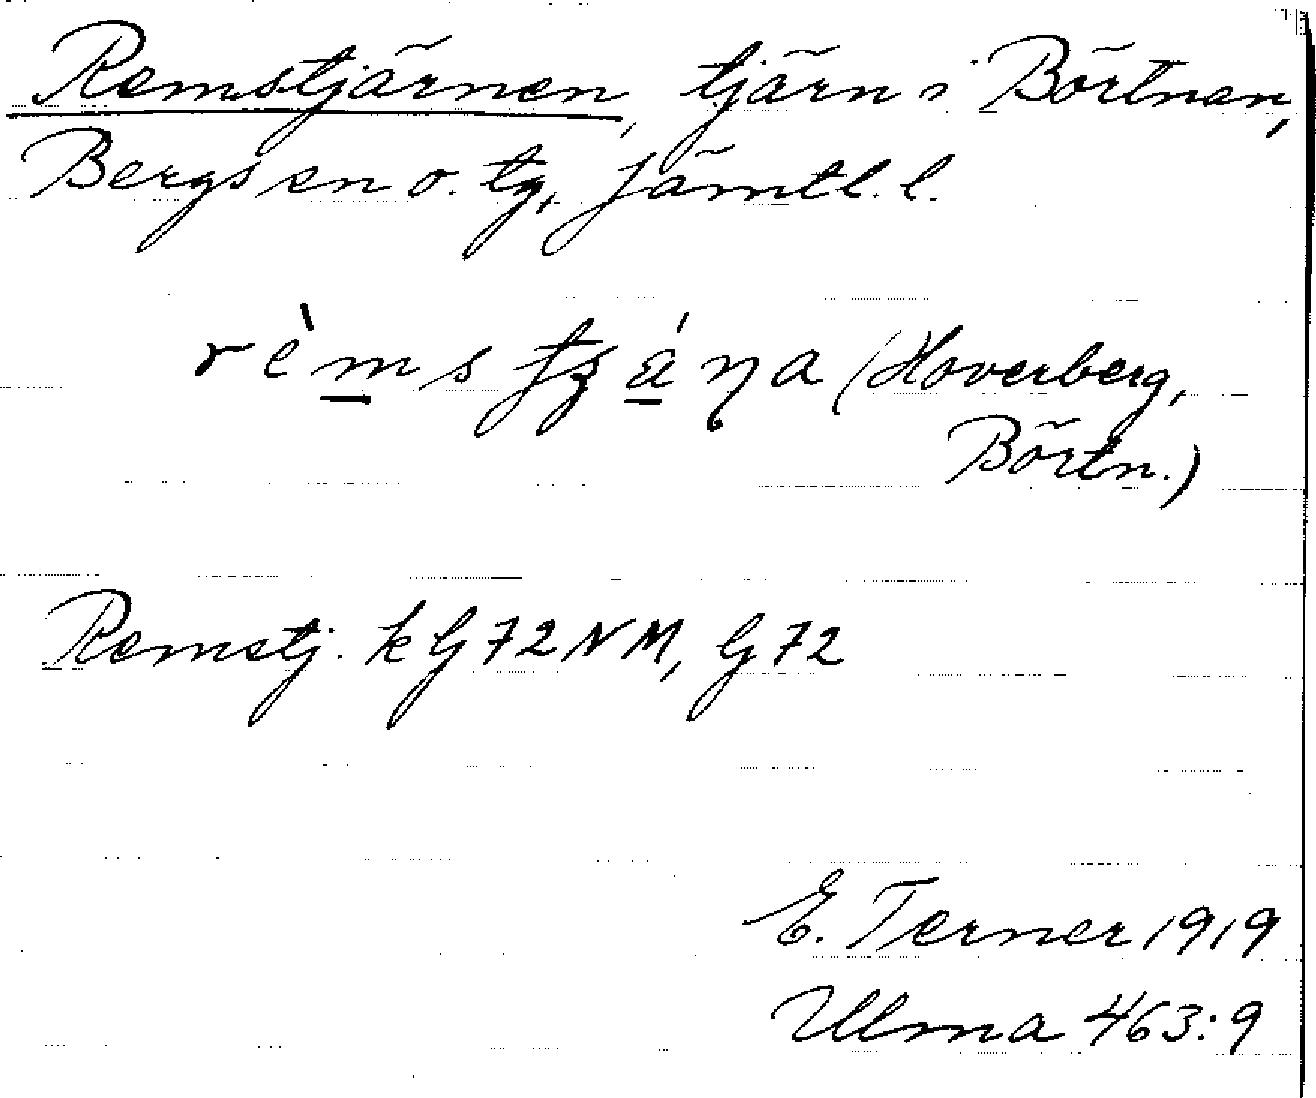 Remstjärnen, tjärn i Börtnan,
Bergs sn o. tg, Jämtl. l.
(Hoverberg,
Börtn.)
Remstj. kG72NM, G72
E. Terner 1919
Ulma 463:9